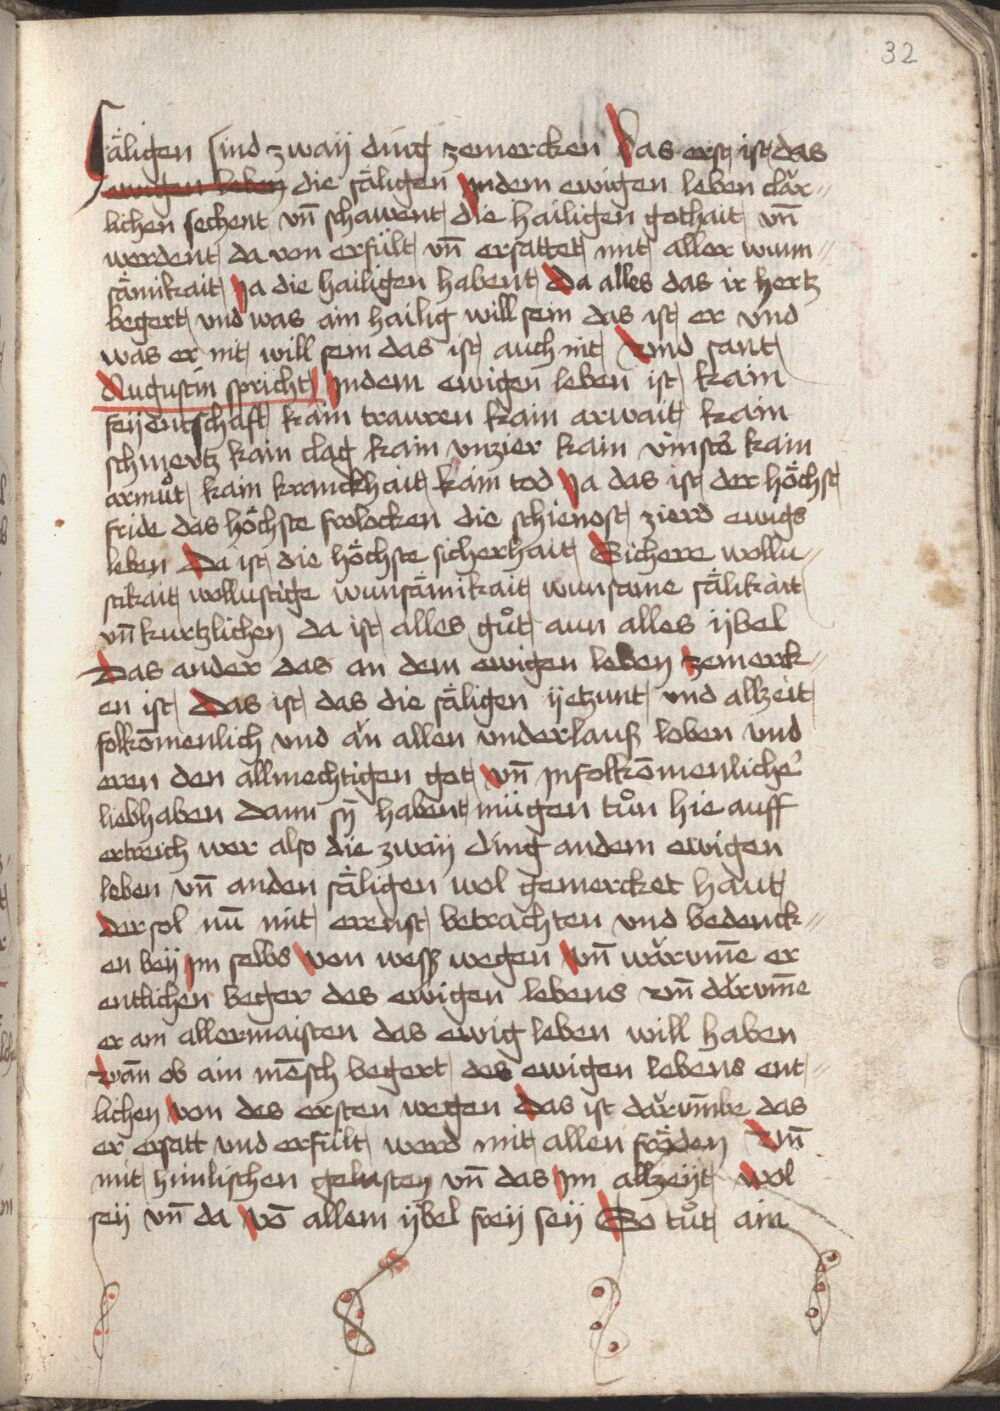 32
säligen sind zwaÿ ding zemercken Das erst ist das
ewigen leben die säligen Jndem ewigen leben clär-
lichen sechent vn̄ schawent die hailigen gothait vn̄
werdent da von erfült vn̄ ersattet mit aller wunn-
sämikait Ja die hailigen habent Da alles das ir hertz
begert vnd was ain hailig will sein das ist er vnd
was er nit will sein das ist auch nit Vnd sant
Augustin spricht Jndem ewigen leben ist kain
feÿentschaft kain trawren kain arwait kain
schmertz kain clag kain vnzier kain vinstē kain
armůt kain kranckhait kain tod Ja das ist der höchst
fride das höchste frolocken die schienost zierd ewigs
leben Da ist die höchste sicherhait Sichere wollu-
stikait wollustige wunsämikait wunsame sälikait
vn̄ kurtzlichen da ist alles gůt aun alles ÿbel
Das ander das an dem ewigen leben zemerck-
en ist Das ist das die säligen ÿetzunt vnd allzeit
folkōmenlich vnd än allen vnderlauß loben vnd
eren den allmechtigen got vn̄ Jnfolkōmenlichē
liebhaben dann sÿ habent mügen tůn hie auff
ertreich wer also die zwaÿ ding andem ewigen
leben vn̄ anden säligen wol gemercket haut
der sol nū mit ernst betrachten vnd bedenck-
en beÿ Jm selbs Von weß wegen Vn̄ wärvm̄e er
entlichen beger des ewigen lebens vn̄ därvm̄e
er am allermaisten das ewig leben will haben
wān ob ain mēsch begert des ewigen lebens ent-
lichen Von des ersten wegen Das ist därvm̄be das
er ersatt vnd erfült werd mit allen fröden Vn̄
mit himlischen gelusten vn̄ das Jm allzeÿt wol
seÿ vn̄ da Vō allem ÿbel freÿ seÿ So tůt ain